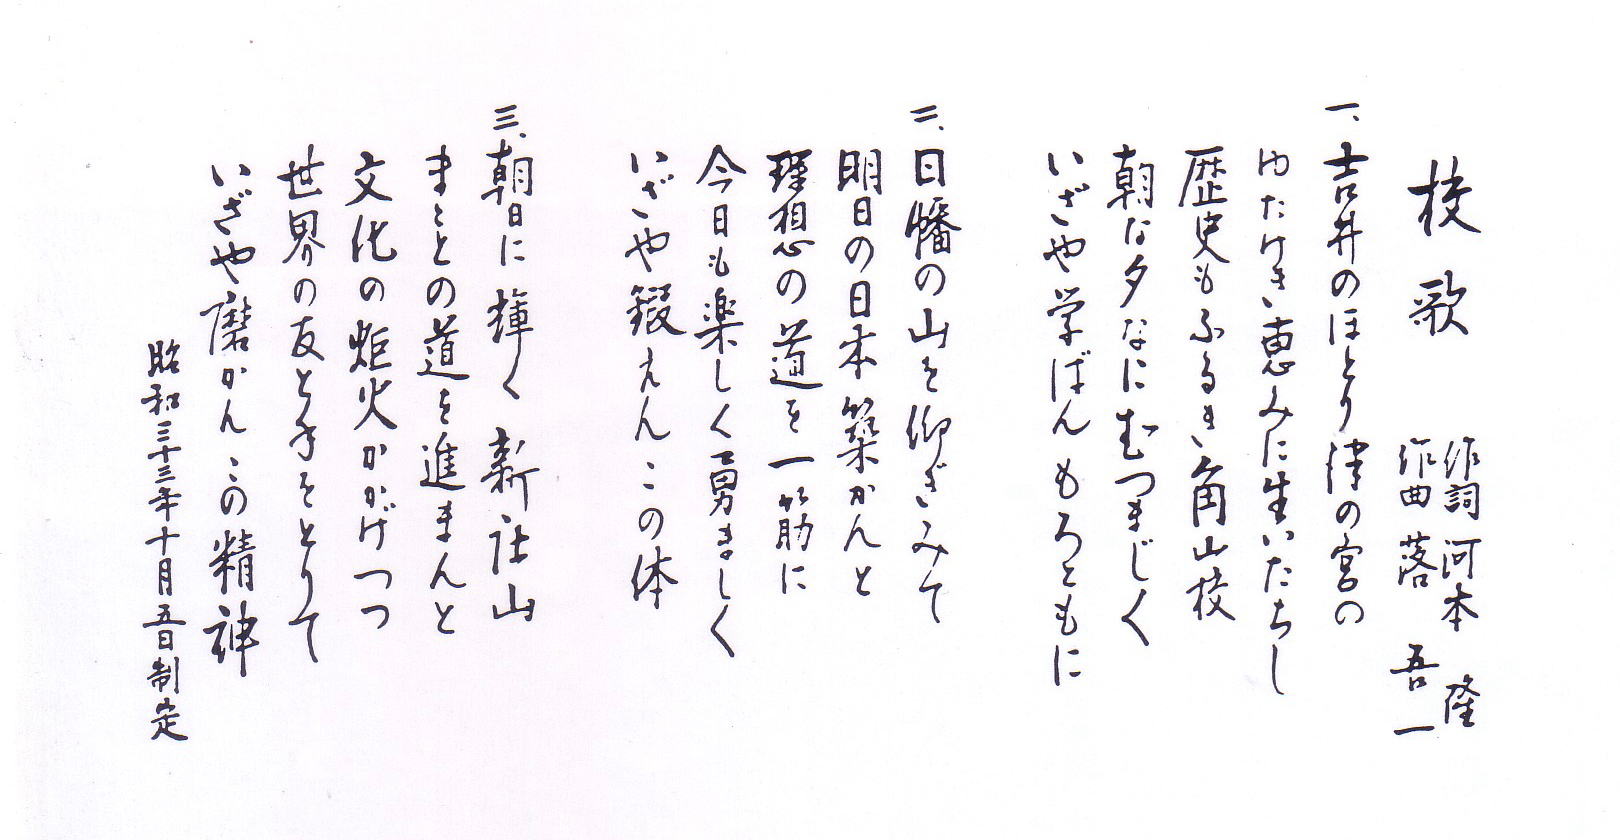 校歌
作詞 河本 隆
作曲 落 吾一
一、吉井のほとり津の宮の
ゆたけき恵みに生いたちし
歴史もふるき角山校
朝な夕なにむつまじく
いざや学ばんもろともに
二、日幡の山を仰ぎみて
明日の日本築かんと
理想の道を一筋に
今日も楽しく勇ましく
いざや鍛えんこの体
三、朝日に輝く新社山
まことの道を進まんと
文化の炬火かかげつつ
世界の友と手をとりて
いざや磨かんこの精神
昭和三十三年十月五日制定